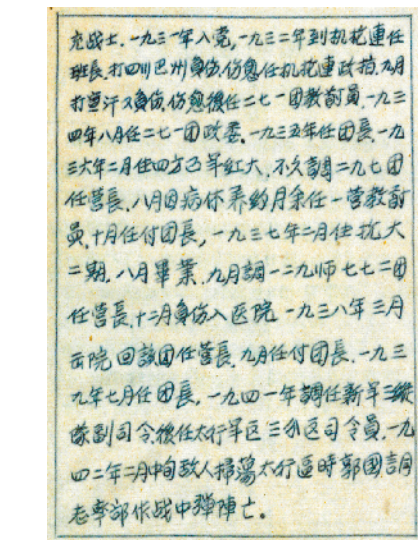 充战士.一九三一年入党,一九三二年到机枪連任
班長.打四川巴州負伤.伤愈任机枪連政指.九月
打宣汗又負伤.伤愈後任二七一团教導員.一九三
四年八月任二七一团政委.一九三五年任团長.一九
三六年二月任四方面軍紅大.不久調二九七团
任营長.八月因病休养約月余任一营教導
員.十月任付团長,一九三七年二月住抗大
二期.八月畢業.九月調一二九师七七二团
任营長.十二月負伤入医院.一九三八年三月
出院回該团任营長.九月任付团長.一九三
九年七月任团長.一九四一年調任新軍三縱
隊副司令後任太行軍区三分区司令員.一九
四二年二月中旬敌人掃蕩太行區時郭國言同
志率部作战中殫陣亡.